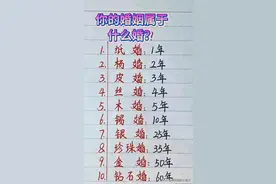 你的婚姻属于
什么婚?
1. 纸 婚: 1年
2. 杨 婚: 2年
3. 皮 婚: 3年
4. 丝 婚: 4年
5. 木 婚: 5年
6. 锡 婚: 10年
7. 银 婚: 25年
8. 珍珠婚: 35年
9. 金 婚: 50年
10. 钻石婚: 60年